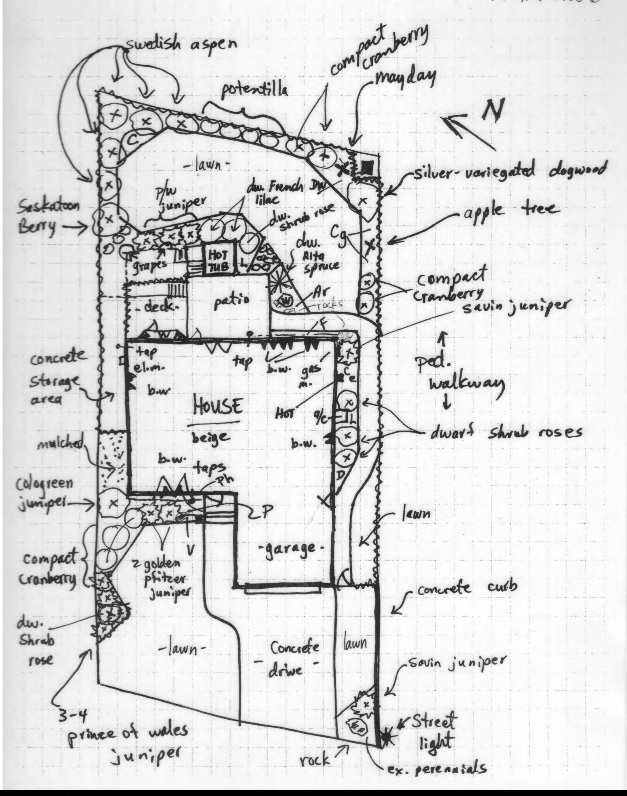 swedish aspen
compact
cranberry
mayday
potentilla
N
C
-lawn-
silver-variegated dogwood
p/w
juniper
dw. French
lilac
DW
dw.
shrub rose
Saskatoon
Berry
apple tree
Cg
grapes
HOT
TUB
dw.
Alta
spruce
compact
cranberry
deck
patio
W
Ar
rocks
savin juniper
F
W
tap
el.m.
tap
b.w.
gas
m.
concrete
storage
area
b.w
Ped.
walkway
HOUSE
beige
HOT
a/c
b.w.
dwarf shrub roses
mulched
b.w.
taps
Ph
D
cologreen
juniper
P
V
lawn
-garage-
compact
cranberry
2 golden
pfitzer
juniper
concrete curb
dw.
Shrub
rose
-lawn-
Concrete
-drive-
lawn
savin juniper
3-4
prince of wales
juniper
Street
light
rock
ex. perennials